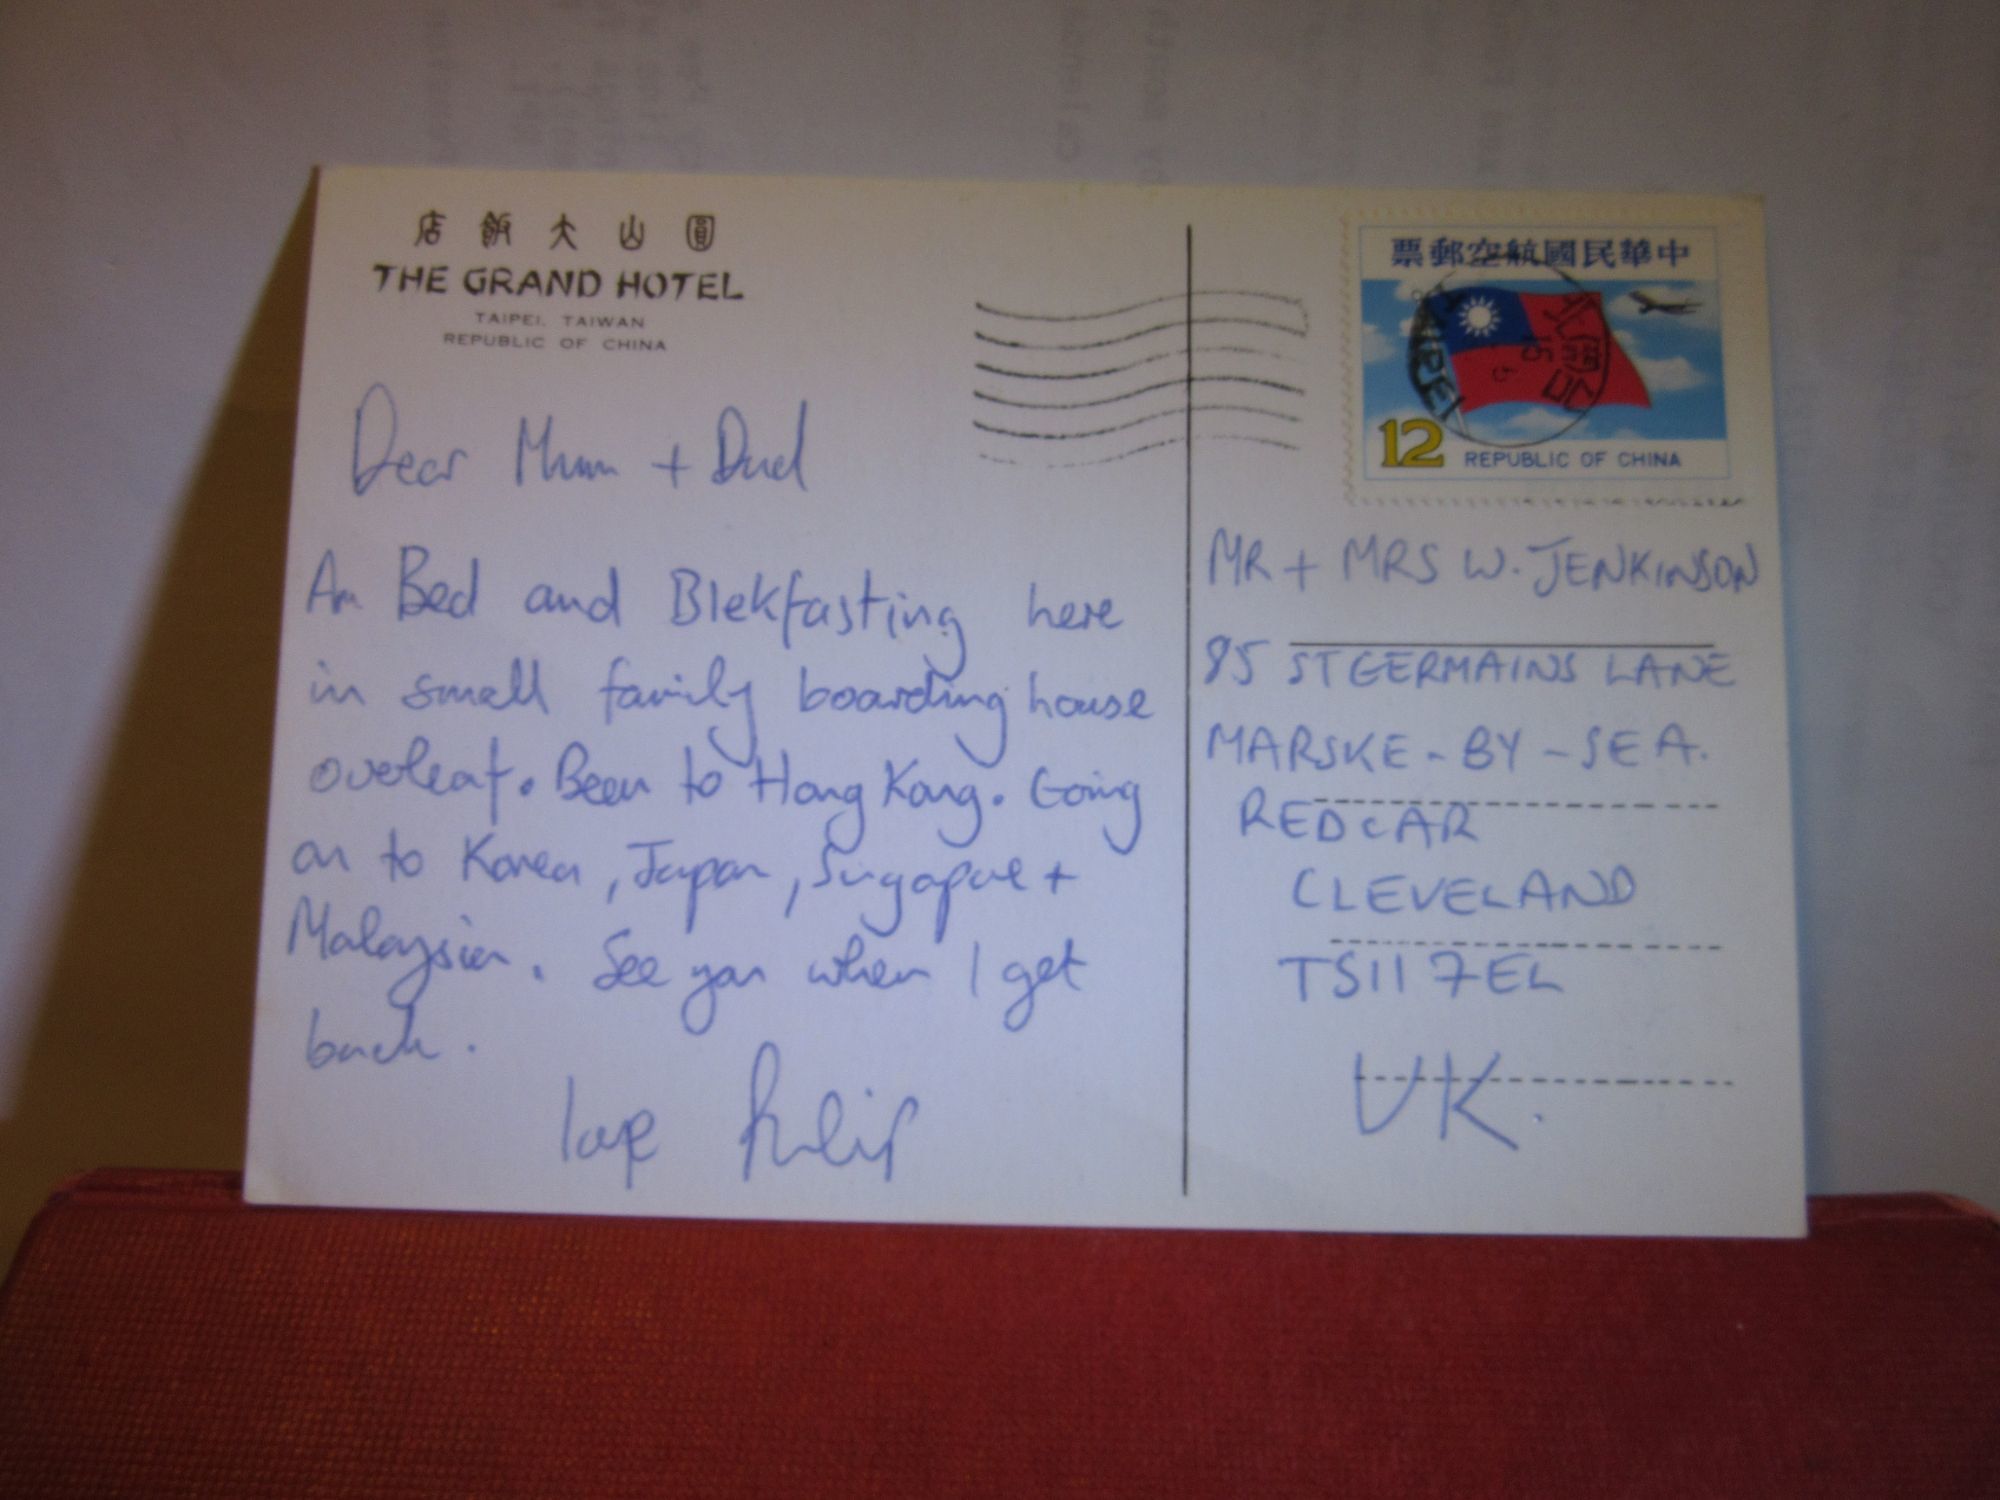 店飯大山圓
THE GRAND HOTEL
TAIPEI, TAIWAN
REPUBLIC OF CHINA
Dear Mum + Dad
Am Bed and Blekfasting here
in small family boarding house
overleaf. Been to Hong Kong. Going
on to Korea, Japan, Singapore +
Malaysia. See you when I get
back.
love Philip
票郵空航國民華中
TAIPEI
12 REPUBLIC OF CHINA
MR + MRS W. JENKINSON
85 ST GERMAINS LANE
MARSKE-BY-SEA.
REDCAR
CLEVELAND
TS11 7EL
UK.